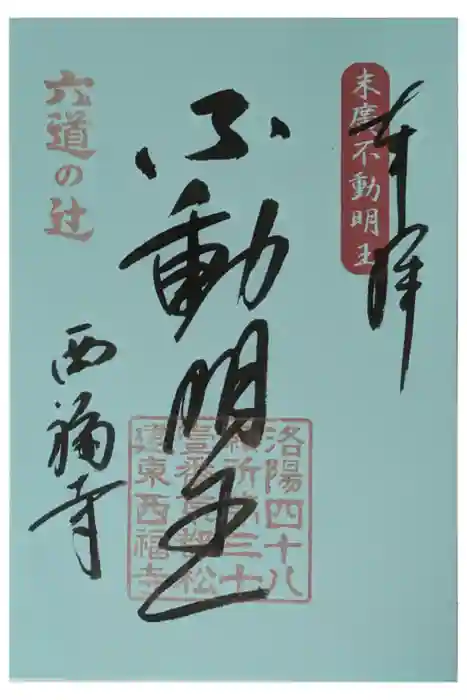 奉拝
末廣不動明王
不動明王
洛陽四十八
願所第三十
壹番京都松
原東西福寺
六道の辻
西福寺